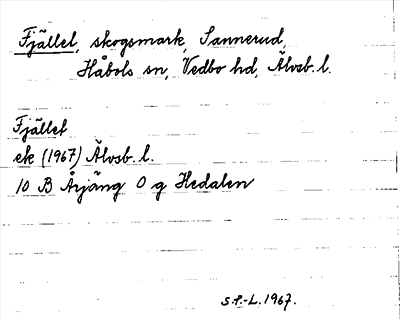 Fjället, skogsmark, Sannerud,
Håbols sn, Vedbo hd, Älvsb. l.
Fjället
ek (1967) Älvsb. l.
10 B Årjäng 0 g Hedalen
S.P.-L. 1967.